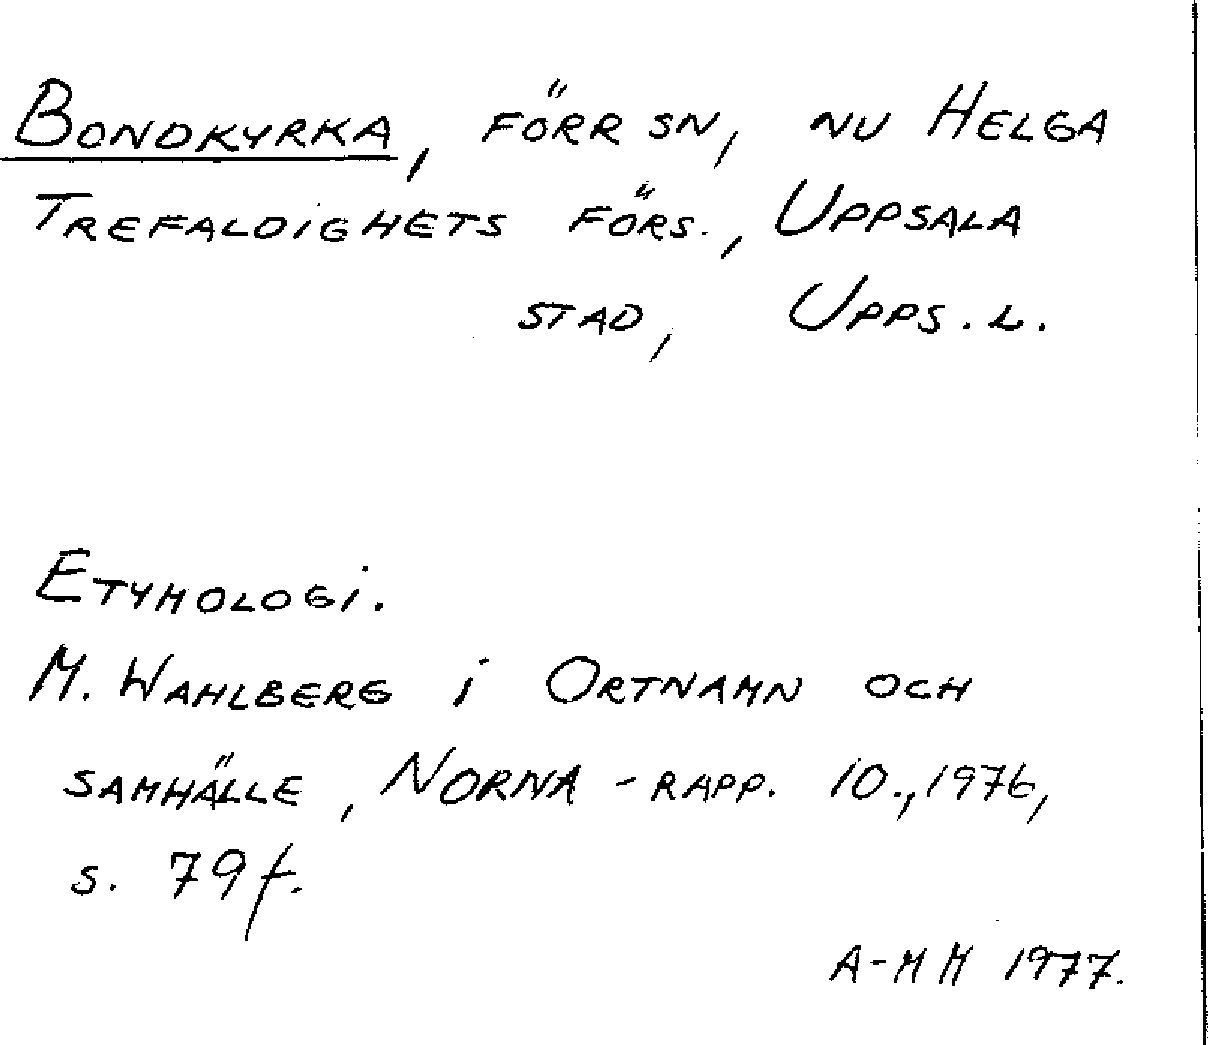 Bondkyrka, förr sn, nu Helga
Trefaldighets förs., Uppsala
stad, Upps. l.
Etymologi.
M. Wahlberg i Ortnamn och
samhälle, Norna-rapp. 10., 1976,
s. 79 f.
A-MM 1977.